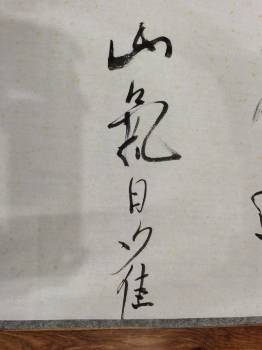 山氣日夕佳